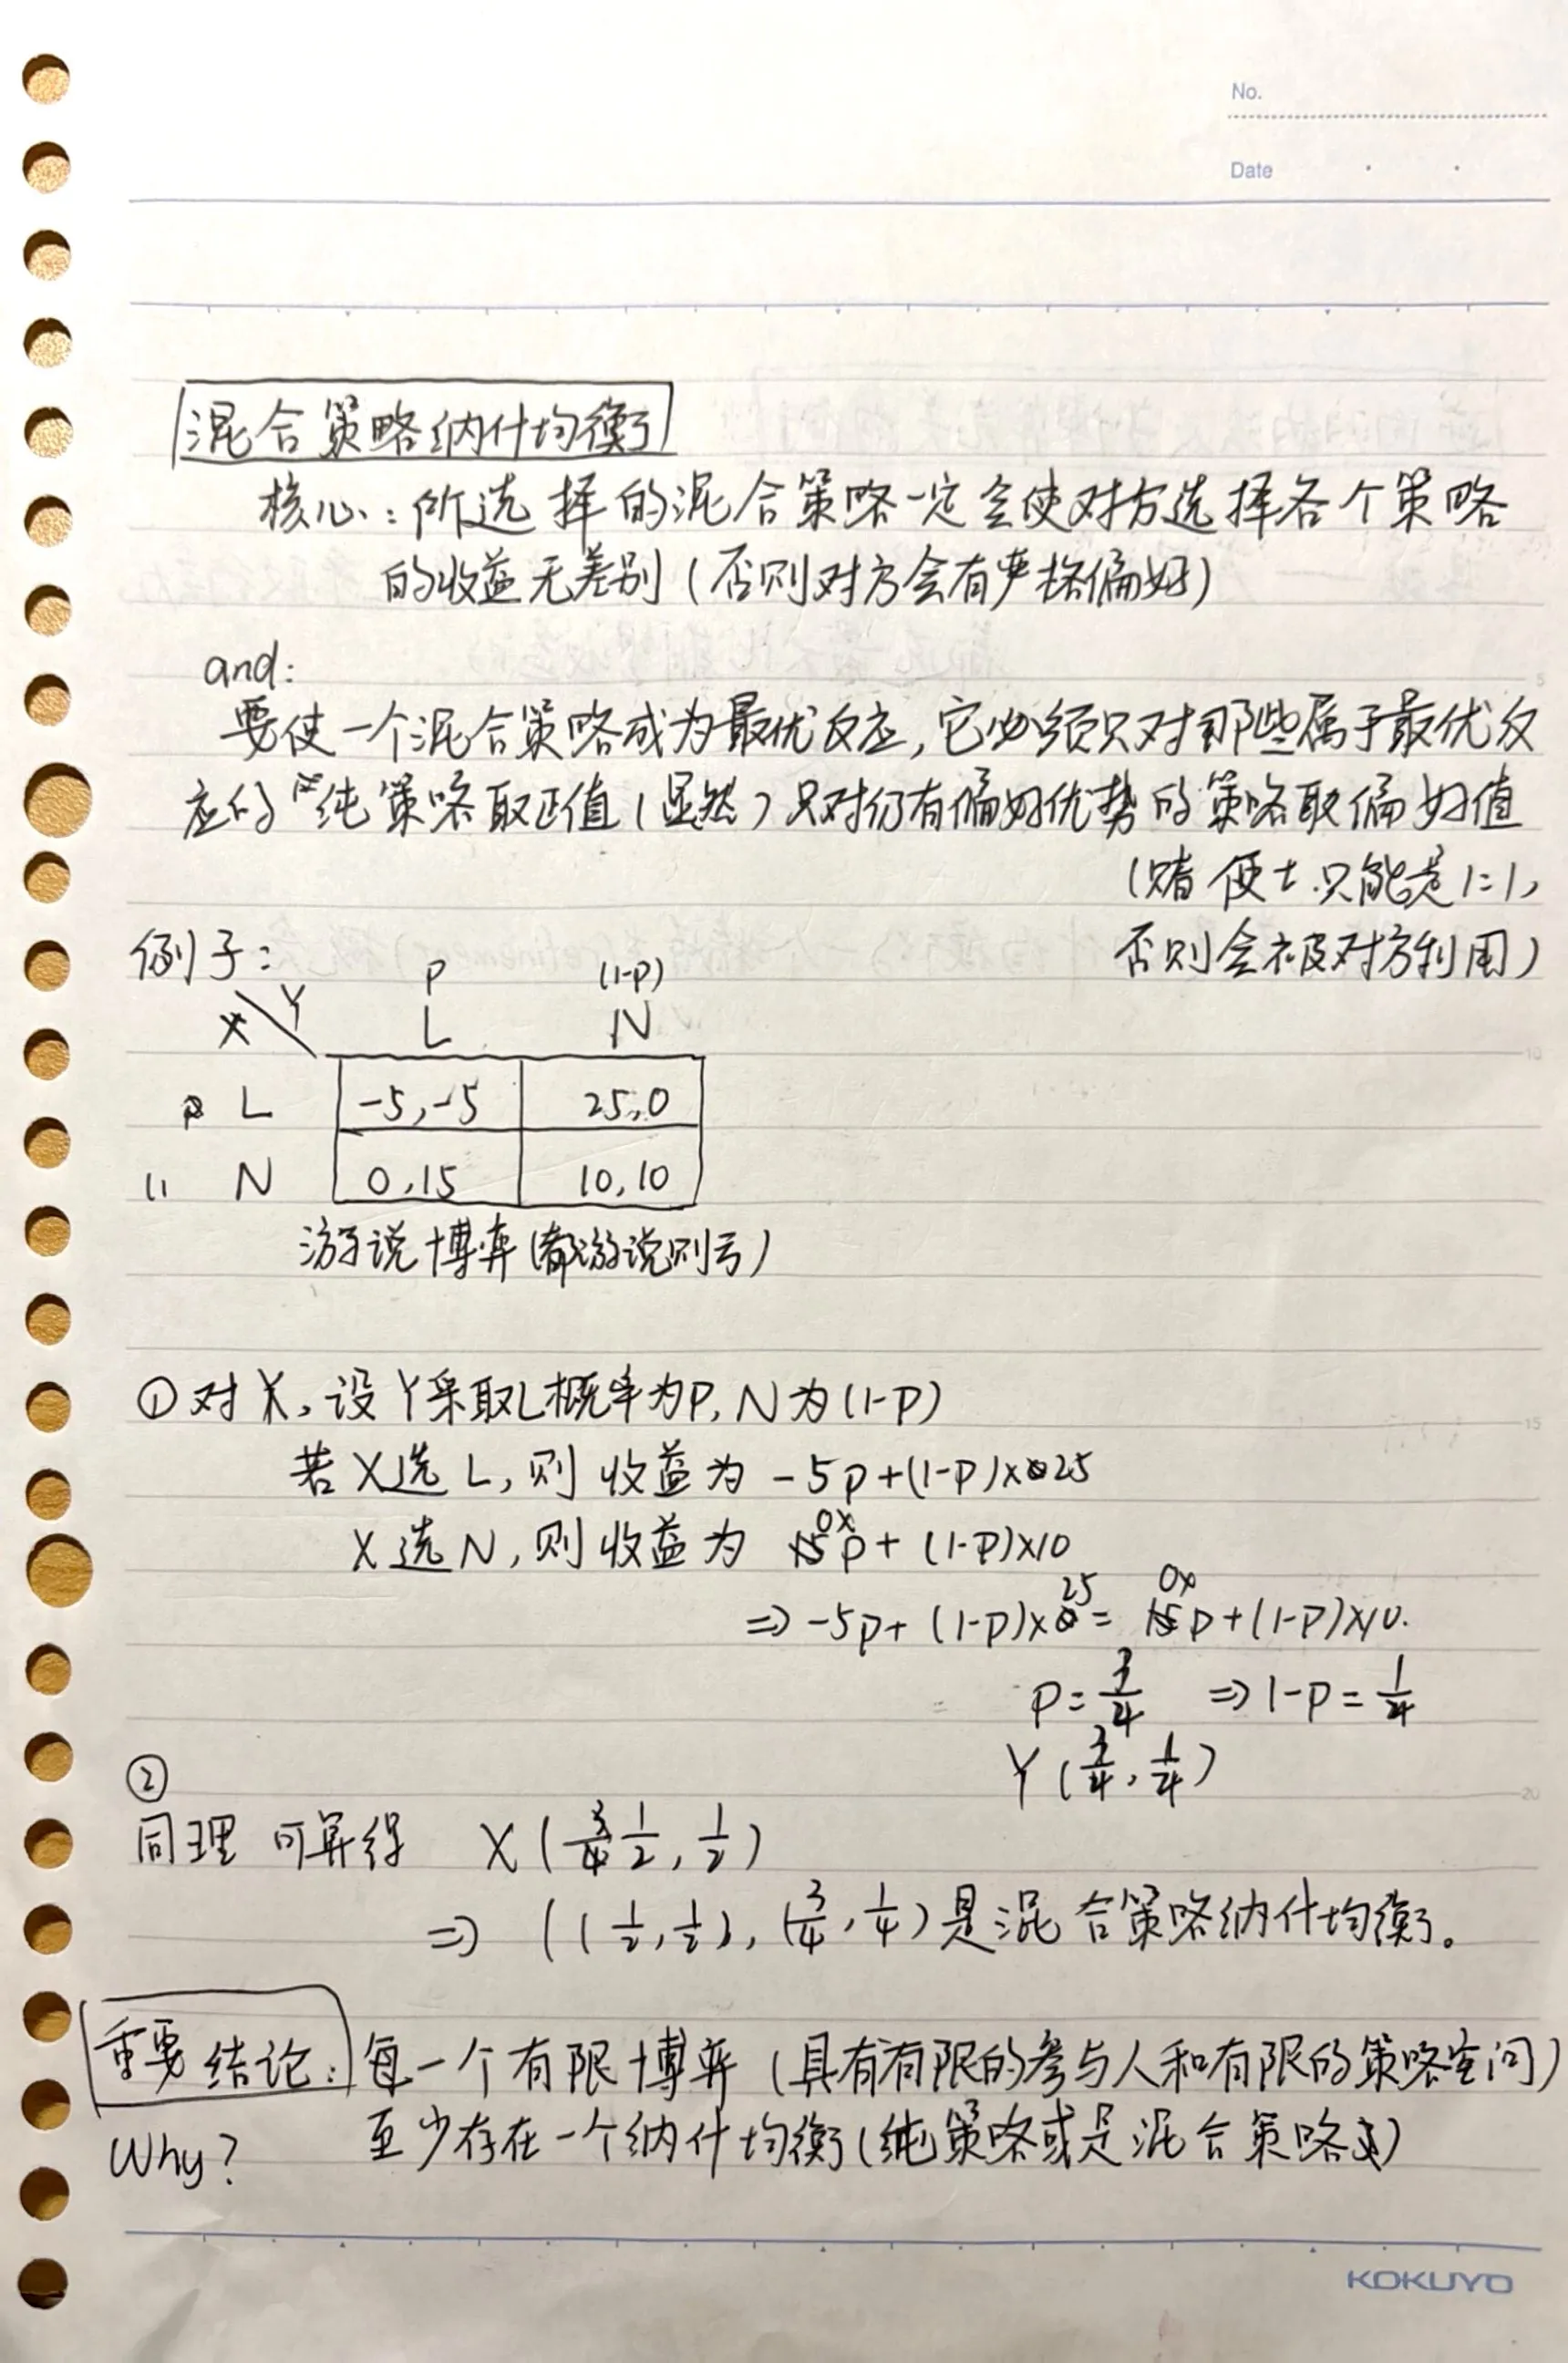 No.
Date
混合策略纳什均衡
核心：所选择的混合策略一定会使对方选择各个策略
的收益无差别（否则对方会有严格偏好）
and:
要使一个混合策略成为最优反应,它必须只对那些属于最优反
应的纯策略取正值（显然）只对仍有偏好优势的策略取偏好值
（赌便士.只能是1:1,
否则会被对方利用）
例子：
p (1-p)
X\Y L N
L -5,-5 25,0
N 0,15 10,10
游说博弈（都游说则亏）
①对X,设Y采取L概率为P,N为(1-P)
若X选L,则收益为 -5p+(1-p)×25
X选N,则收益为 0×p+(1-p)×10
⇒ -5p+(1-p)×25 = 0×p+(1-p)×10.
p=3/4 ⇒ 1-p=1/4
Y(3/4,1/4)
②
同理可算得 X(1/2,1/2)
⇒ ((1/2,1/2),(3/4,1/4)是混合策略纳什均衡。
重要结论：每一个有限博弈（具有有限的参与人和有限的策略空间）
Why? 至少存在一个纳什均衡（纯策略或是混合策略）
5
10
15
20
KOKUYO